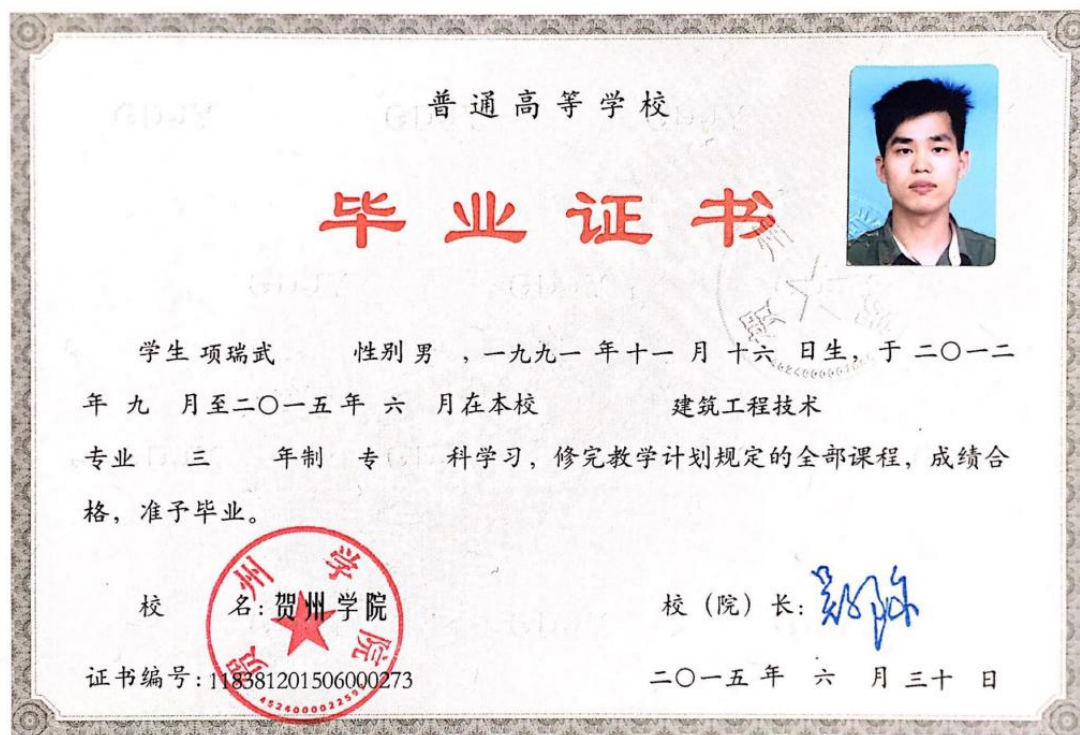 普通高等学校
毕业证书
学生 项瑞武 性别 男 ，一九九一 年十一 月 十六 日生，于 二〇一二
年 九 月至二〇一五年 六 月在本校 建筑工程技术
专业 三 年制 专 科学习，修完教学计划规定的全部课程，成绩合
格，准予毕业。
校 名：贺州学院
校（院）长：
贺州学院
证书编号：118381201506000273
二〇一五 年 六 月 三十 日